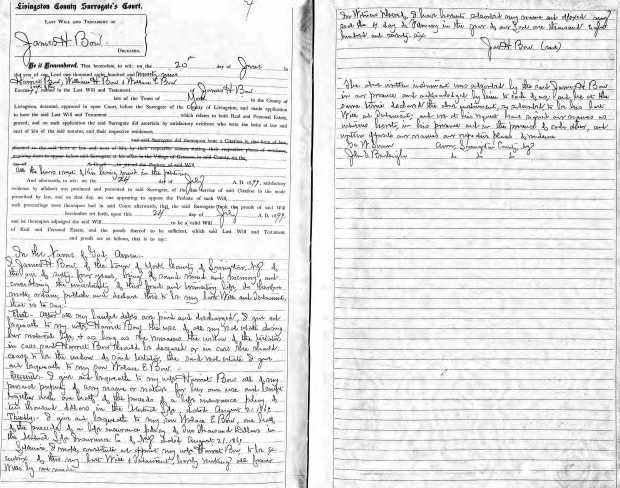 Livingston County Surrogate's Court.
LAST WILL AND TESTAMENT OF
James H. Bow
DECEASED.
Be it Remembered, That heretofore, to wit: on the 20th day of June in
the year of our Lord one thousand eight hundred and ninety nine
Harriet Bow, William H. Bow & Wallace E Bow
named in the Last Will and Testament of James H Bow
late of the Town of York in the County of
Livingston, deceased, appeared in open Court, before the Surrogate of the County of Livingston, and made application
to have the said Last Will and Testament which relates to both Real and Personal Estate,
proved; and on such application the said Surrogate did ascertain by satisfactory evidence who were the heirs at law and
next of kin of the said testator, and their respective residences,
and said Surrogate did thereupon issue a Citation in due form of law,
directed to the said heirs at law and next of kin, by their respective names stating their respective places of residence,
requiring them to appear before said Surrogate at his office in the Village of Geneseo, in said County, on the
day of A. D. to attend the probate of said Will.
All the heirs & next of kin being joined in the petition
And afterwards, to wit: on the 24 day of July A. D. 1899, satisfactory
evidence by affidavit was produced and presented to said Surrogate, of the due service of said Citation in the mode
prescribed by law, and on that day, no one appearing to oppose the Probate of such Will,
such proceedings were thereupon had in said Court afterwards, that the said Surrogate took the proofs of said Will
hereinafter set forth, upon this 24 day of July A. D. 1899.
and he thereupon adjudged the said Will to be a valid Will
of Real and Personal Estate, and the proofs thereof to be sufficient, which said Last Will and Testament
and proofs are as follows, that is to say:
In the Name of God, Amen.
I James H Bow, of the town of York County of Livingston, N.Y. of
the age of sixty four years being of sound mind and memory, and
considering the uncertainty of this frail and transitory life, do therefore
make, ordain, publish and declare this to be my last Will and Testament,
that is to say:
First - After all my lawful debts are paid and discharged, I give and
bequeath to my wife Harriet Bow the use of all my real estate during
her natural life, & as long as she remains the widow of the testator
in case said Harriet Bow should be deceased or in case she should
cease to be the widow of said testator, the said real estate I give
and bequeath to my son Wallace E Bow.
Second: - I give and bequeath to my wife Harriet Bow all of my
personal property of any name or nature for her own use and benefit
together with one half of the proceeds of a life insurance policy of
two thousand dollars in the United Life dated August 21. 1869.
Thirdly: - I give and bequeath to my son Wallace E Bow, one half
of the proceeds of a life insurance policy of Two Thousand Dollars in
the United Life Insurance Co. of N.Y. dated August 21. 1869.
Likewise I make, constitute and appoint my wife Harriet Bow to be
of this my last Will & Testament, hereby revoking all former
Wills by me made
In Witness Whereof, I have hereunto subscribed my name and affixed my
seal the day of January in the year of our Lord one thousand eight
hundred and ninety six
James H. Bow (seal)
The above written instrument was subscribed by the said James H Bow
in our presence and acknowledged by him to each of us; and he at the
same time declared the above instrument, so subscribed to be his last
Will and Testament, and we at his request have signed our names as
witnesses hereto, in his presence and in the presence of each other, and
written opposite our names our respective places of residence.
Livingston County, N.Y.